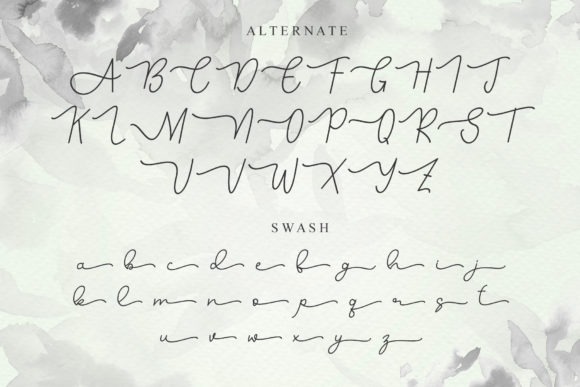 ALTERNATE
A B C D E F G H I J
K L M N O P Q R S T
U V W X Y Z
SWASH
a b c d e f g h i j
k l m n o p q r s t
u v w x y z